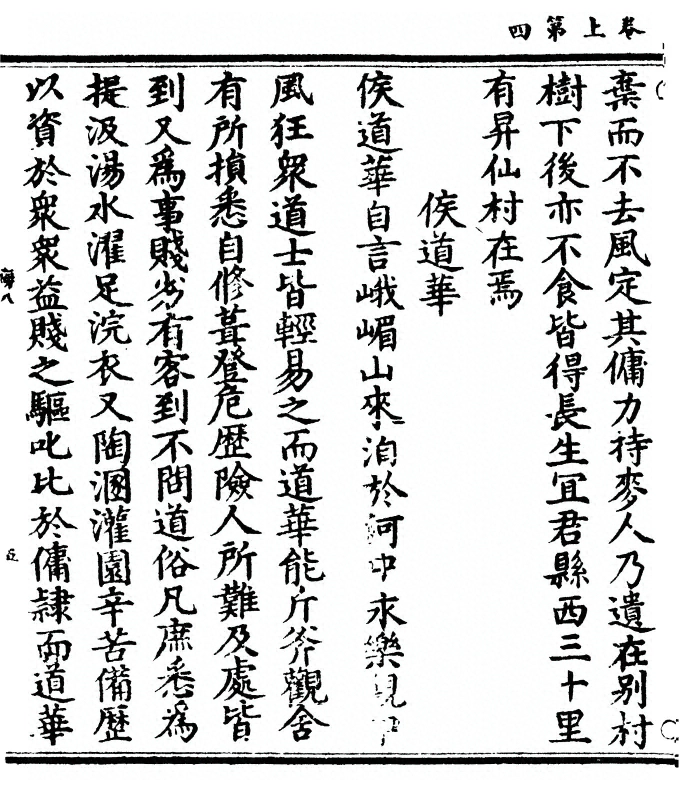 卷上第四
棄而不去風定其傭力待麥人乃遺在别村
樹下後亦不食皆得長生宜君縣西三十里
有昇仙村在焉
侯道華
侯道華自言峨嵋山來泊於河中永樂觀
風狂衆道士皆輕易之而道華能斤斧觀舍
有所損悉自修葺登危歷險人所難及處皆
到又爲事賤劣有客到不問道俗凡庶悉為
提汲湯水濯足浣衣又陶溷灌園辛苦備歷
以資於衆衆益賤之驅叱比於傭隷而道華